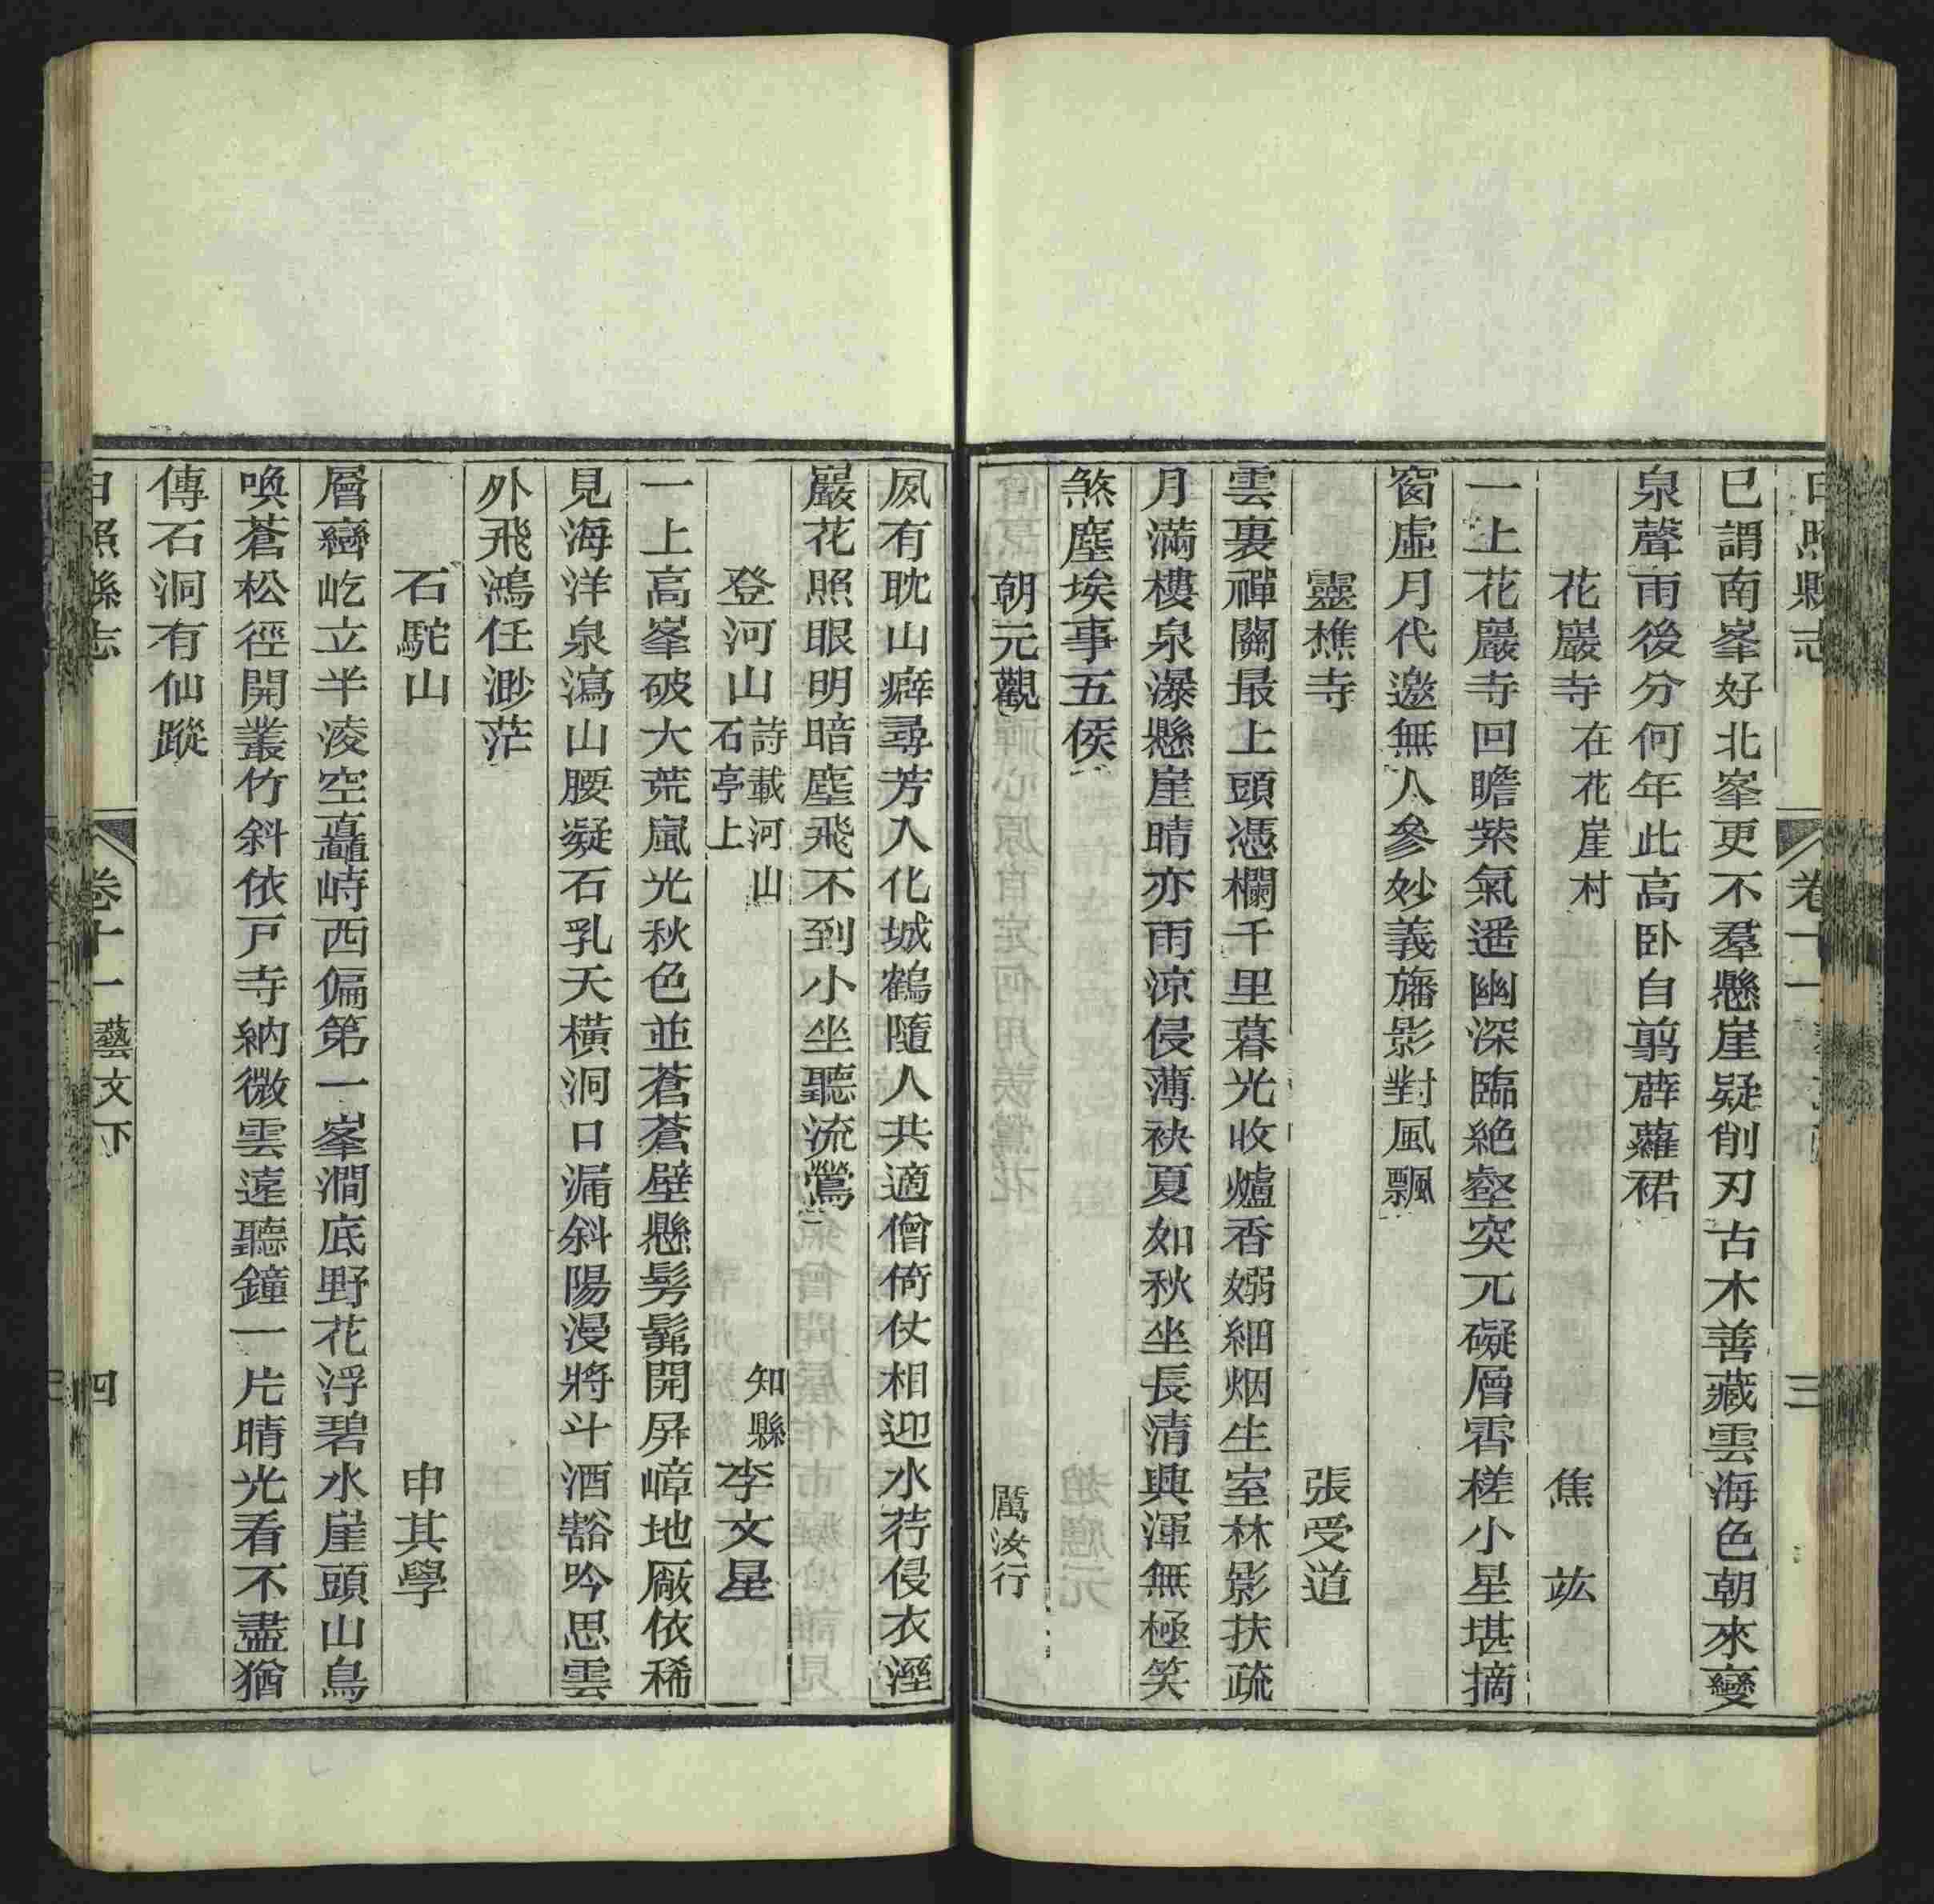 日照縣志 卷十一 藝文下 三
已謂南峯好北峯更不羣懸崖疑削刃古木善藏雲海色朝來變
泉聲雨後分何年此高卧自翦薜蘿裙
花巖寺 在花崖村 焦竑
一上花巖寺回瞻紫氣遥幽深臨絶壑突兀礙層霄槎小星堪摘
窗虛月代邀無人參妙義旛影對風飄
靈樵寺 張受道
雲裏禪關最上頭憑欄千里暮光收爐香嫋細烟生室林影扶疏
月滿樓泉瀑懸崖晴亦雨涼侵薄袂夏如秋坐長清興渾無極笑
煞塵埃事五侯
朝元觀 厲汝行
夙有耽山癖尋芳入化城鶴隨人共適僧倚仗相迎水荇侵衣溼
巖花照眼明暗塵飛不到小坐聽流鶯
登河山 詩載河山石亭上 知縣李文星
一上高峯破大荒嵐光秋色並蒼蒼壁懸髣髴開屏嶂地厰依稀
見海洋泉瀉山腰凝石乳天橫洞口漏斜陽漫將斗酒豁吟思雲
外飛鴻任渺茫
石駝山 申其學
層巒屹立半凌空矗峙西偏第一峯澗底野花浮碧水崖頭山鳥
喚蒼松徑開叢竹斜依戸寺納微雲遠聽鐘一片晴光看不盡猶
傳石洞有仙蹤
日照縣志 卷十一 藝文下 四